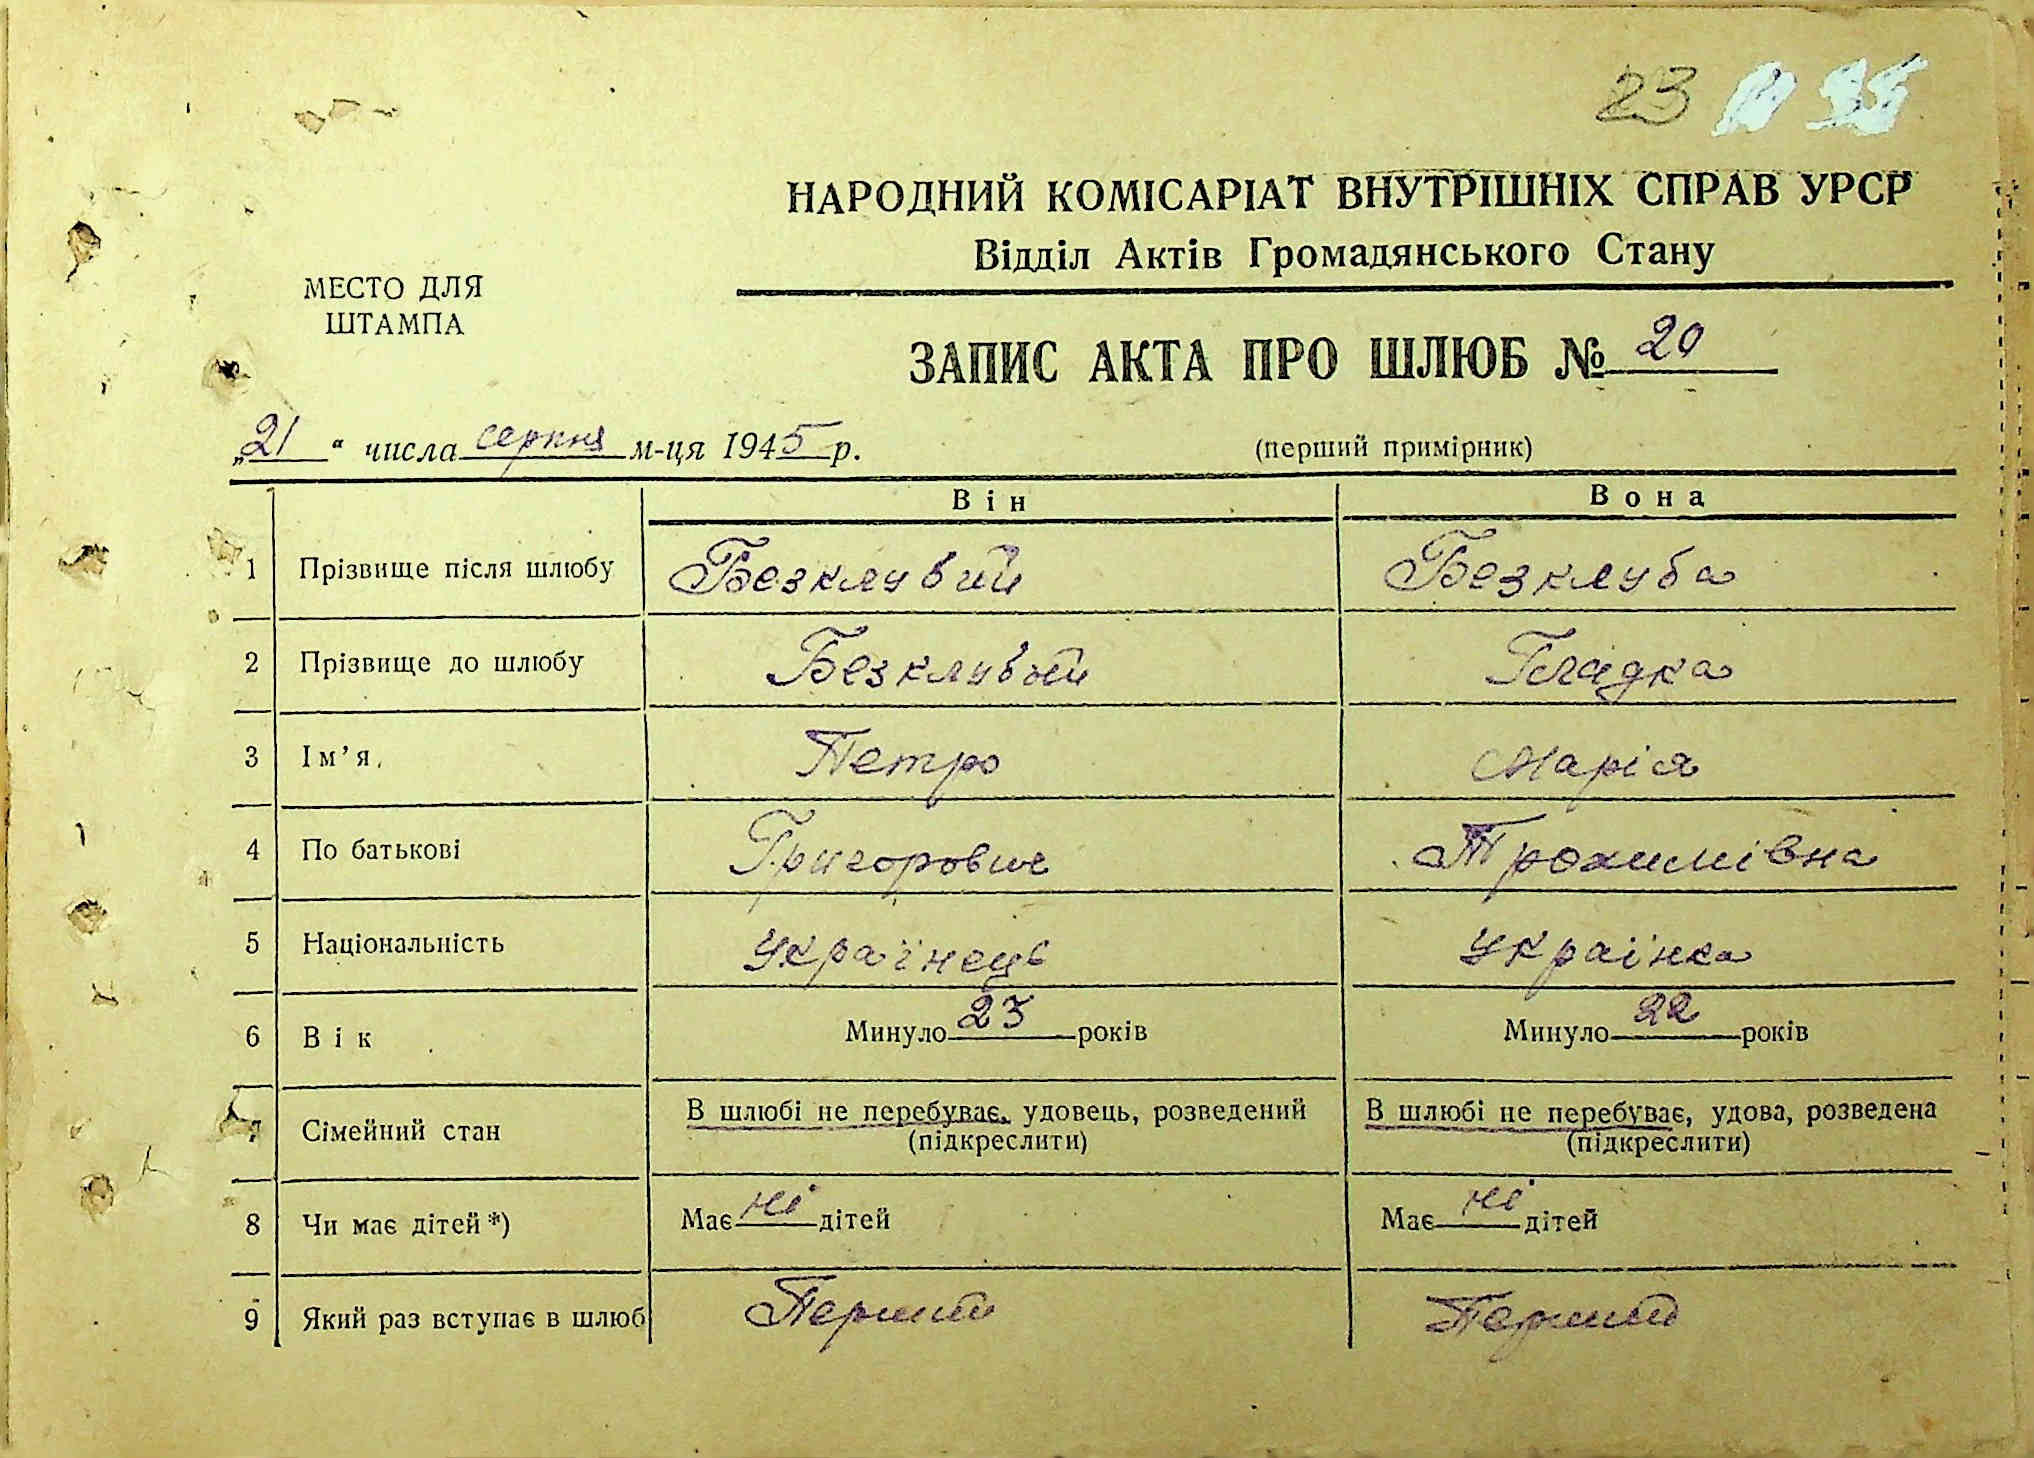 23
НАРОДНИЙ КОМІСАРІАТ ВНУТРІШНІХ СПРАВ УРСР
Відділ Актів Громадянського Стану
МЕСТО ДЛЯ
ШТАМПА
ЗАПИС АКТА ПРО ШЛЮБ № 20
„21“ числа серпня м-ця 1945 р.
(перший примірник)
Він Вона
1 Прізвище після шлюбу Безклубий Безклуба
2 Прізвище до шлюбу Безклубий Гладка
3 Ім’я Петро Марія
4 По батькові Григорович Трохимівна
5 Національність українець українка
6 Вік Минуло 23 років Минуло 22 років
7 Сімейний стан В шлюбі не перебуває, удовець, розведений В шлюбі не перебуває, удова, розведена
(підкреслити) (підкреслити)
8 Чи має дітей *) Має ні дітей Має ні дітей
9 Який раз вступає в шлюб Перший Перший